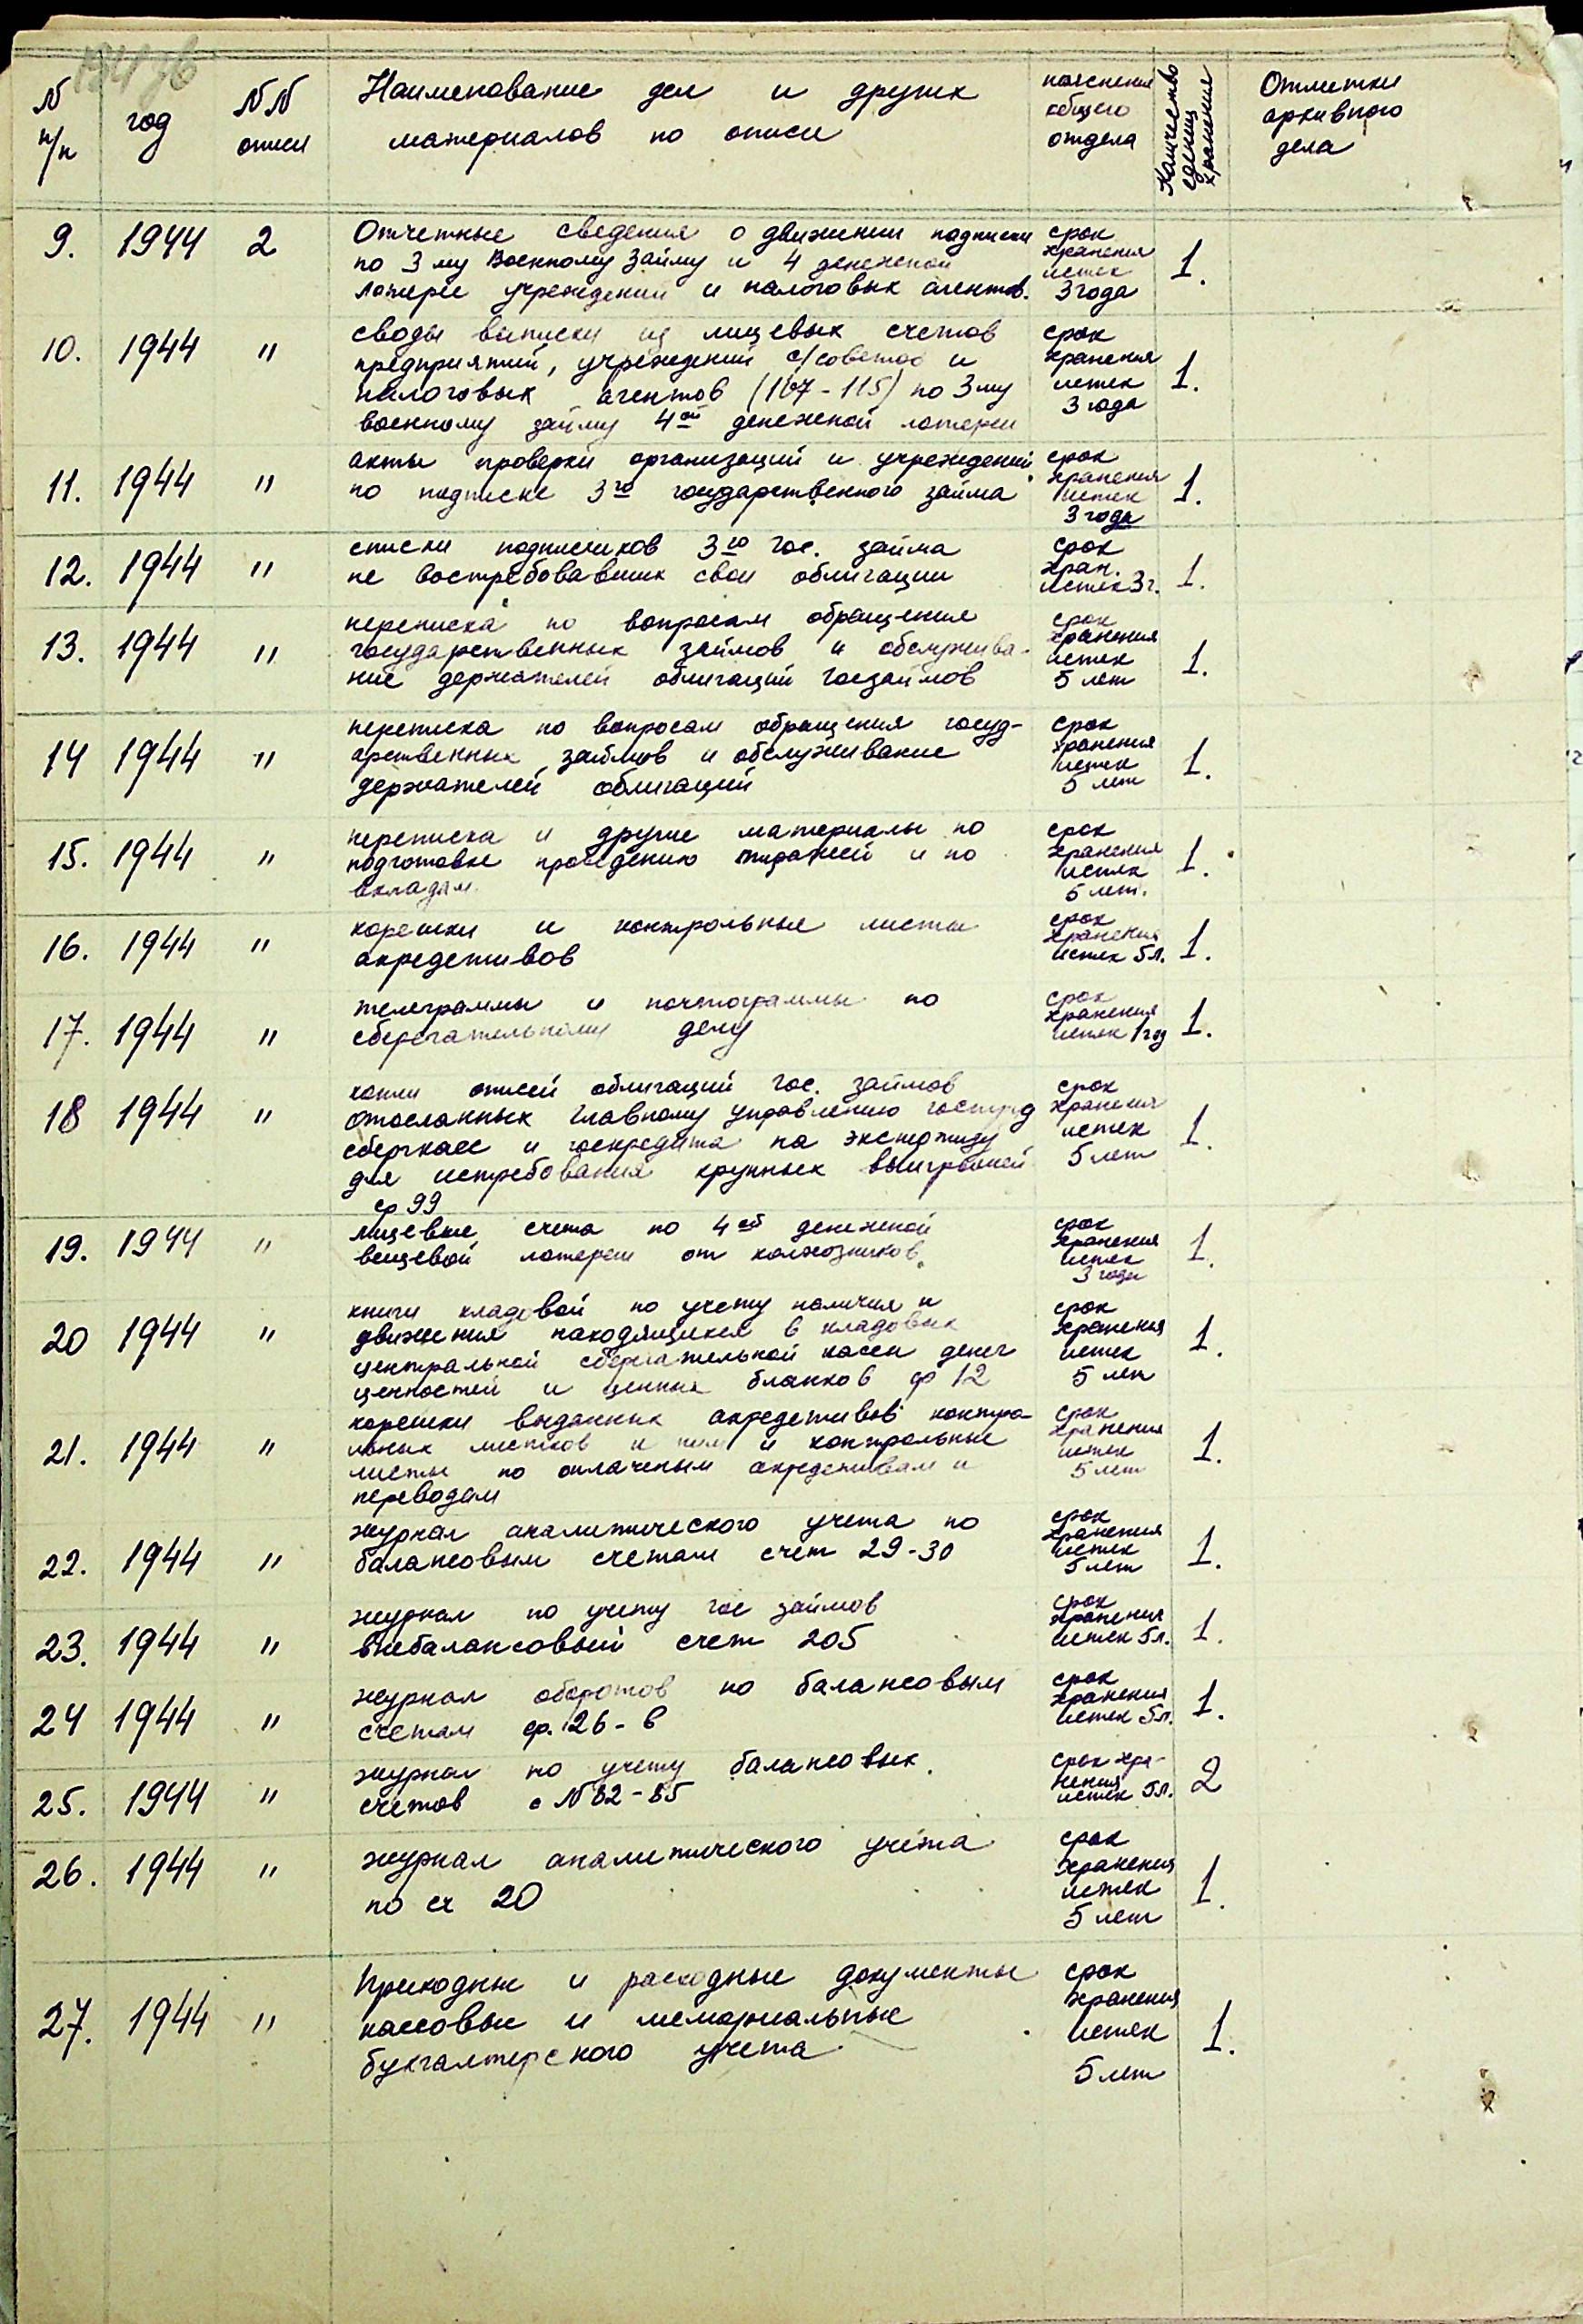 N п/п год NN описи Наименование дел и других пояснения Количество единиц хранения Отметки
материалов по описи общего отдела архивного дела
9. 1944 2 Отчетные сведения о движении подписки срок
по 3му Военному займу и 4 денежной хранения истек 1.
лотереи учреждении и налоговых агентов. 3 года
10. 1944 " своды выписки из лицевых счетов срок
предприятий, учреждений с/советов и хранения
налоговых агентов (107-115) по 3му истек 1.
военному займу 4ой денежной лотереи 3 года
11. 1944 " акты проверки организаций и учреждений срок хранения
по подписке 3го государственного займа истек 3 года 1.
12. 1944 " списки подписчиков 3го гос. займа срок
не востребовавших свои облигации хран. истек 3г. 1.
13. 1944 " переписка по вопросам обращения срок
государственных займов и обслужива- хранения истек 1.
ние держателей облигаций госзаймов 5 лет
14 1944 " переписка по вопросам обращения госуд- срок
арственных займов и обслуживание хранения истек 1.
держателей облигаций 5 лет
15. 1944 " переписка и другие материалы по срок
подготовке проведению тиражей и по хранения истек 1.
вкладам. 5 лет.
16. 1944 " корешки и контрольные листы срок хранения
акредетивов истек 5л. 1.
17. 1944 " телеграммы и почтограммы по срок хранения
сберегательному делу истек 1 год 1.
18 1944 " копии описей облигаций гос. займов срок
отосланных Главному управлению гоструд хранения
сберкасс и госкредита на экспертизу истек 1.
для истребования крупных выигрышей 5 лет
ф 99
19. 1944 " лицевые счета по 4ой денежной срок хранения
вещевой лотереи от колхозников. истек 3 года 1.
20 1944 " книги кладовой по учету наличия и срок
движения находящихся в кладовых хранения
центральной сберегательной кассы денег истек 1.
ценностей и ценных бланков ф 12 5 лет
21. 1944 " корешки выданных акредетивов контро срок
льных листков к ним и контрольные хранения
листы по оплаченым акредетивам и истек 5 лет 1.
переводам
22. 1944 " журнал аналитического учета по срок хранения
балансовым счетам счет 29-30 истек 5 лет 1.
23. 1944 " журнал по учету гос займов срок хранения
внебалансовый счет 205 истек 5л. 1.
24 1944 " журнал оборотов по балансовым срок хранения
счетам ф. 26-в истек 5л. 1.
25. 1944 " журнал по учету балансовых срок хра-
счетов с N 82-85 нения истек 5л. 2
26. 1944 " журнал аналитического учета срок хранения
по сч 20 истек 5 лет 1.
27. 1944 " Приходные и расходные документы срок хранения
кассовые и мемориальные истек 1.
бухгалтерского учета 5 лет